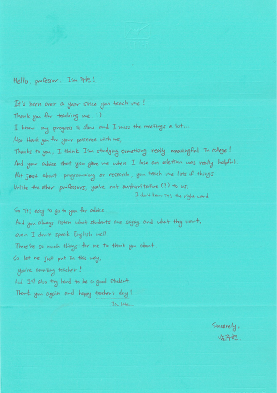 Hello, professor. I'm
It's been over a year since you teach me!
Thank you for teaching me :)
I know my progress is slow and I miss the meetings a lot..
Nor thank you for your patience with me.
Thanks to you, I think I'm studying something really meaningful in college!
And your advice that you give me when I lose my direction was really helpful.
Not just about programming or research, you teach me lots of things!
Unlike the other professors, you're not authoritative(?) to us,
I don't know it's the right word.
So it's easy to go to you for advice.
And you always listen what students are saying and what they want,
even I don't speak English well.
There're so much things for me to thank you about
So let me just put it this way,
you're amazing teacher!
And I'll also try hard to be a good student.
Thank you again and happy teacher's day!
Sincerely,